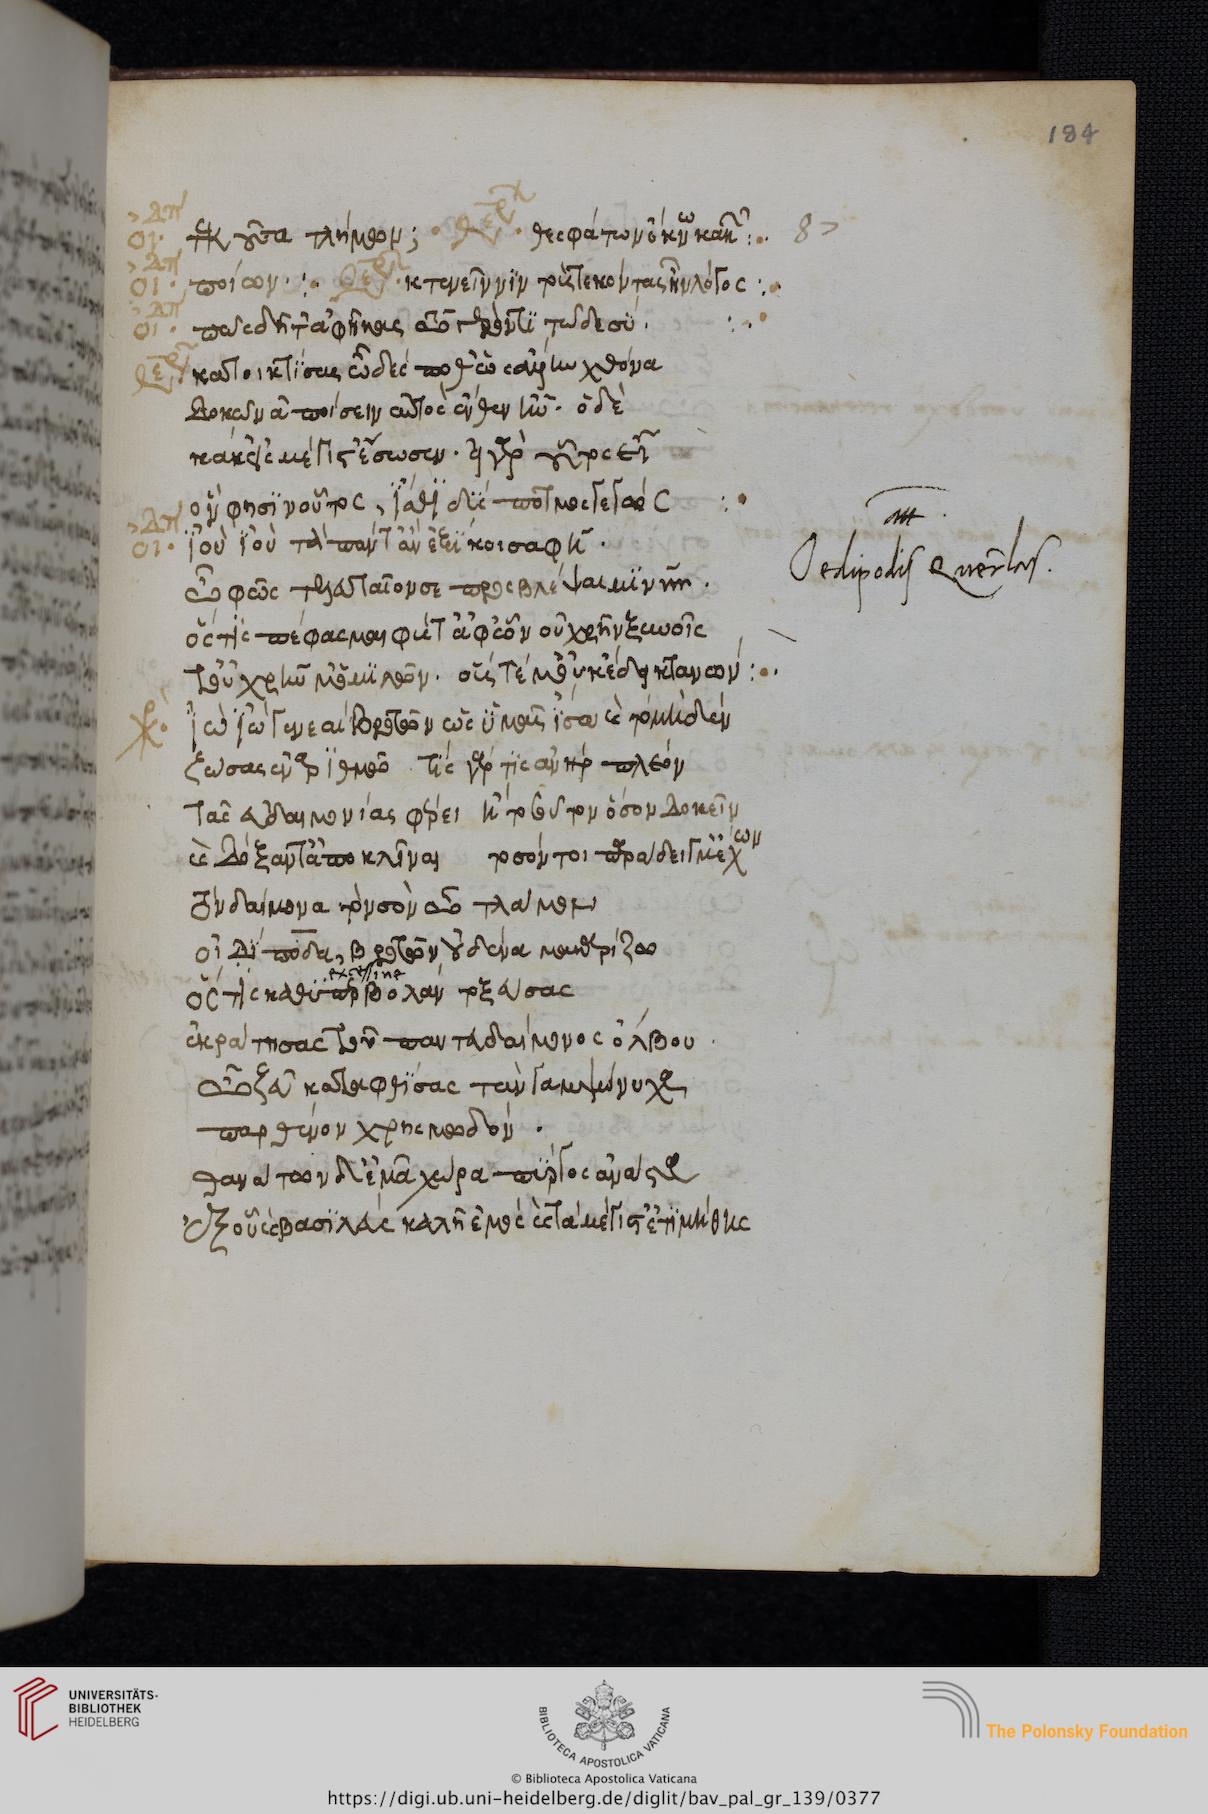 184
οἰδίπ τεκοῦσα τλήμων; θερ θεσφάτων ὄκνω κακῶν:
οἰδίπ ποίων: θερ κτενεῖν νιν τοὺς τεκόντας ἦν λόγος:
οἰδίπ πῶς δῆτ' ἀφῆκας τῷ γέροντι τῷδε σύ:
θερ κατοικτίσας ὦ δέσποθ' ὡς ἄλλην χθόνα
δοκῶν ἀποίσειν αὐτὸς ἔνθεν ἦν. ὁ δὲ
κάκ' εἰς μέγιστ' ἔσωσεν. εἰ γὰρ οὗτος εἶ
ὃν φησιν οὗτος, ἴσθι δύσποτμος γεγώς:
οἰδίπ ἰοὺ ἰού τὰ πάντ' ἂν ἐξίκοι σαφῆ.
ὦ φῶς τελευταῖόν σε προσβλέψαιμι νῦν.
ὅστις πέφασμαι φύς τ' ἀφ' ὧν οὐ χρῆν ξὺν οἷς
τ' οὐ χρῆν μ' ὁμιλῶν. οὕς τέ μ' οὐκ ἔδει κτανών:
χρ ἰὼ ἰὼ γενεαὶ βροτῶν ὡς ὑμᾶς ἴσα καὶ τὸ μηδὲν
ζώσας ἐναριθμῶ τίς γὰρ τίς ἀνὴρ πλέον
τᾶς εὐδαιμονίας φέρει ἢ τοσοῦτον ὅσον δοκεῖν
καὶ δόξαντ' ἀποκλῖναι τὸ σόν τοι παράδειγμ' ἔχων
εὐδαίμονα τὸν σὸν ὦ τλᾶμον
οἰδιπόδα, βροτῶν οὐδένα μακαρίζω
excessiue
ὅστις καθ' ὑπερβολὰν τοξεύσας
ἐκράτησας τοῦ πάντ' εὐδαίμονος ὄλβου.
ὦ ζεῦ κατὰ φθίσας τὰν γαμψώνυχα
παρθένον χρησμῳδόν.
θανάτων δ' ἐμᾷ χώρα πύργος ἀνέστα
ἐξ οὗ καὶ βασιλεὺς καλῇ ἐμὸς καὶ τὰ μέγιστ' ἐτιμήθης
Oedipodis Querelas.
UNIVERSITÄTS-
BIBLIOTHEK
HEIDELBERG
BIBLIOTECA APOSTOLICA VATICANA
The Polonsky Foundation
© Biblioteca Apostolica Vaticana
https://digi.ub.uni-heidelberg.de/diglit/bav_pal_gr_139/0377